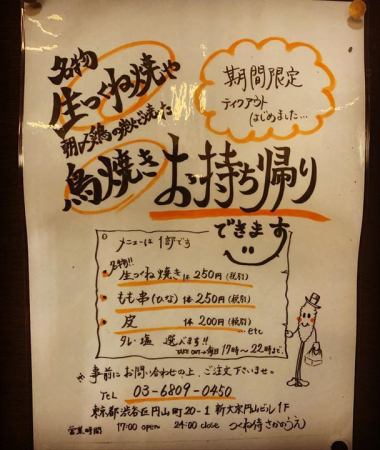 名物
生つくね焼や
朝〆鶏の炭火焼き
鳥焼き お持ち帰り
できます
期間限定
テイクアウト
はじめました…
メニューは1部です
名物!!
生つくね焼き 1本 250円(税別)
もも串(ひな) 1本 250円(税別)
皮 1本 200円(税別)
…etc
タレ・塩 選べます!!
TAKE OUT→毎日 17時〜22時まで。
※事前にお問い合わせの上、ご注文下さいませ。
TEL 03-6809-0450
東京都渋谷区円山町20-1 新大宗円山ビル1F
営業時間 17:00 open 24:00 close つくね侍 さかのうえ